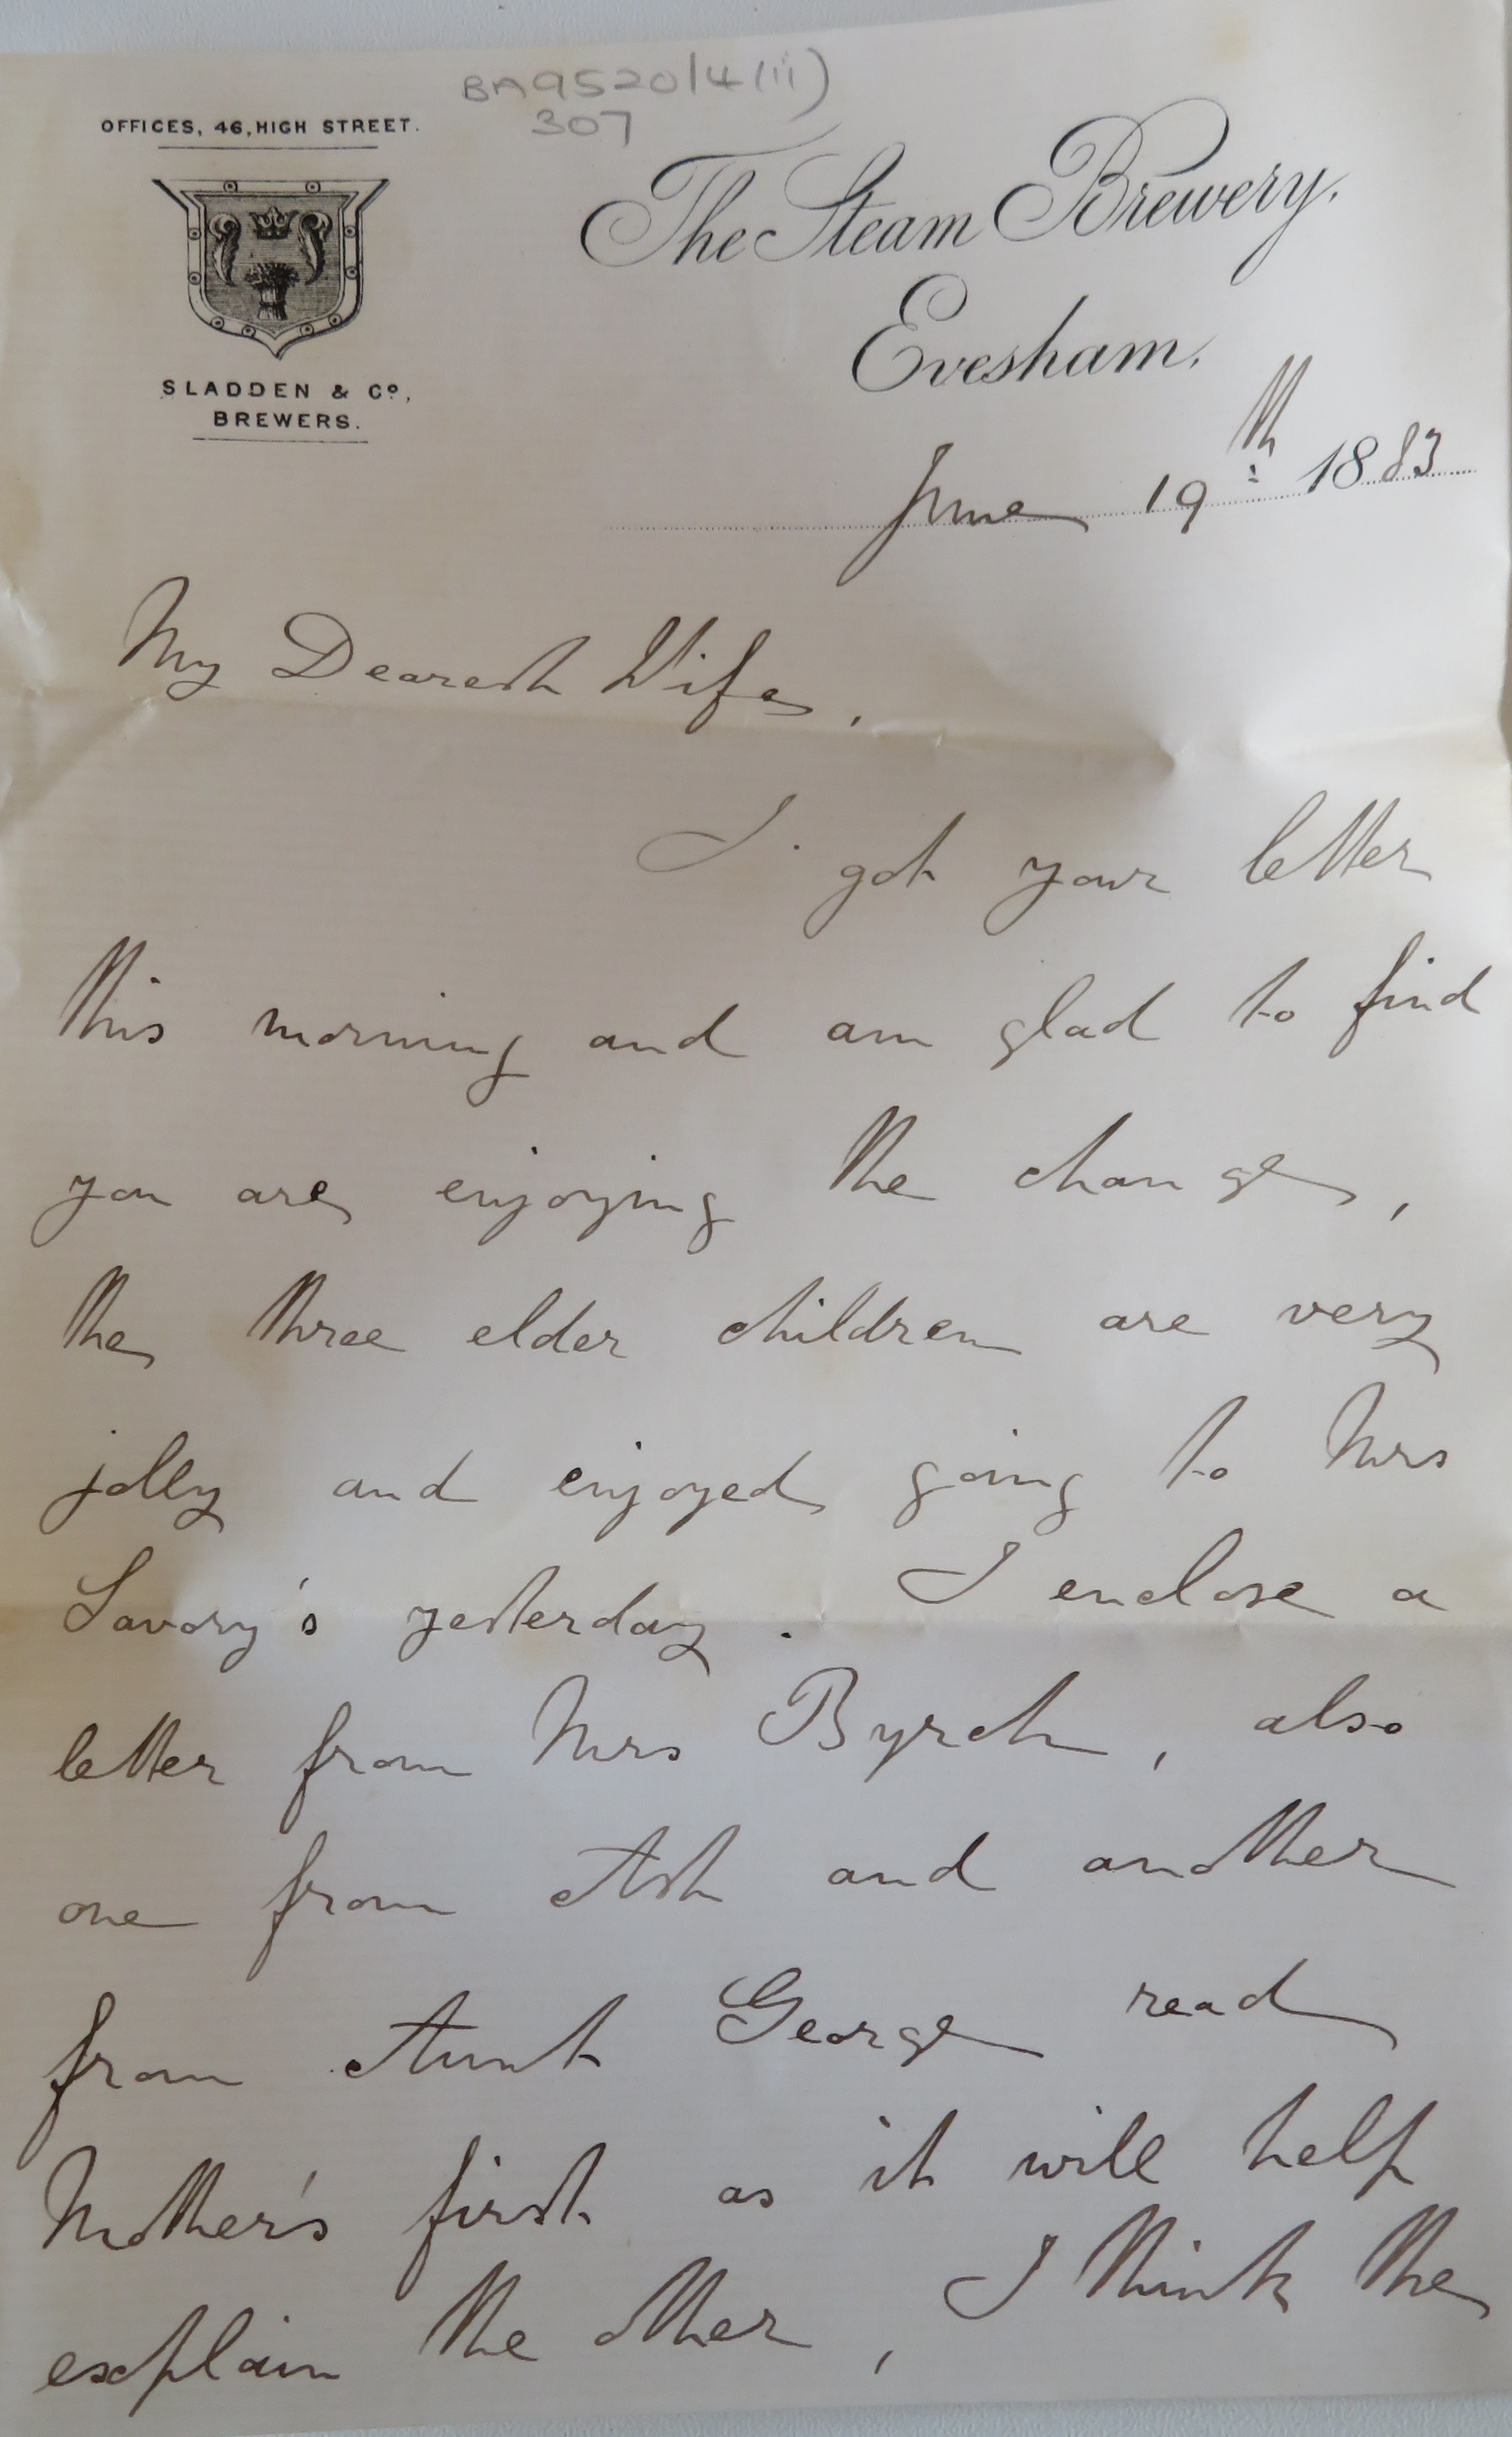 BA9520/4(iii)
307
OFFICES, 46, HIGH STREET.
SLADDEN & Co,
BREWERS.
The Steam Brewery,
Evesham,
June 19th 1883
My Dearest Wife,
I got your letter
this morning and am glad to find
you are enjoying the change,
the three elder children are very
jolly and enjoyed going to Mrs
Savory's yesterday. I enclose a
letter from Mrs Byrch, also
one from Ash and another
from Aunt George read
Mother's first as it will help
explain the other, I think the